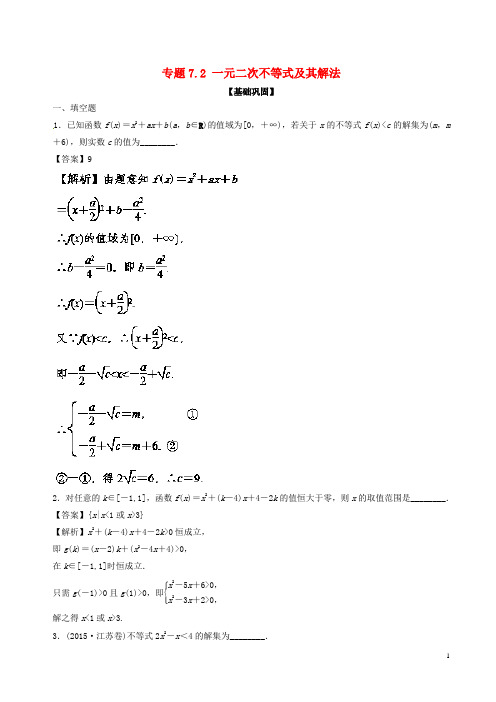 专题7.2 一元二次不等式及其解法
【基础巩固】
一、填空题
1.已知函数f(x)=x²+ax+b(a,b∈R)的值域为[0,+∞),若关于x的不等式f(x)<c的解集为(m,m
+6),则实数c的值为________.
【答案】9
【解析】由题意知 f(x)=x²+ax+b
=(x+a/2)²+b-a²/4.
∴f(x)的值域为[0,+∞),
∴b-a²/4=0,即b=a²/4.
∴f(x)=(x+a/2)².
又∵f(x)<c,∴(x+a/2)²<c,
即-a/2-√c<x<-a/2+√c.
∴{-a/2-√c=m, ①
-a/2+√c=m+6. ②
②-①,得2√c=6,∴c=9.
2.对任意的k∈[-1,1],函数f(x)=x²+(k-4)x+4-2k的值恒大于零,则x的取值范围是________.
【答案】{x|x<1或x>3}
【解析】x²+(k-4)x+4-2k>0恒成立,
即g(k)=(x-2)k+(x²-4x+4)>0,
在k∈[-1,1]时恒成立.
只需g(-1)>0且g(1)>0,即{x²-5x+6>0,
x²-3x+2>0,
解之得x<1或x>3.
3.(2015·江苏卷)不等式2x²-x<4的解集为________.
1